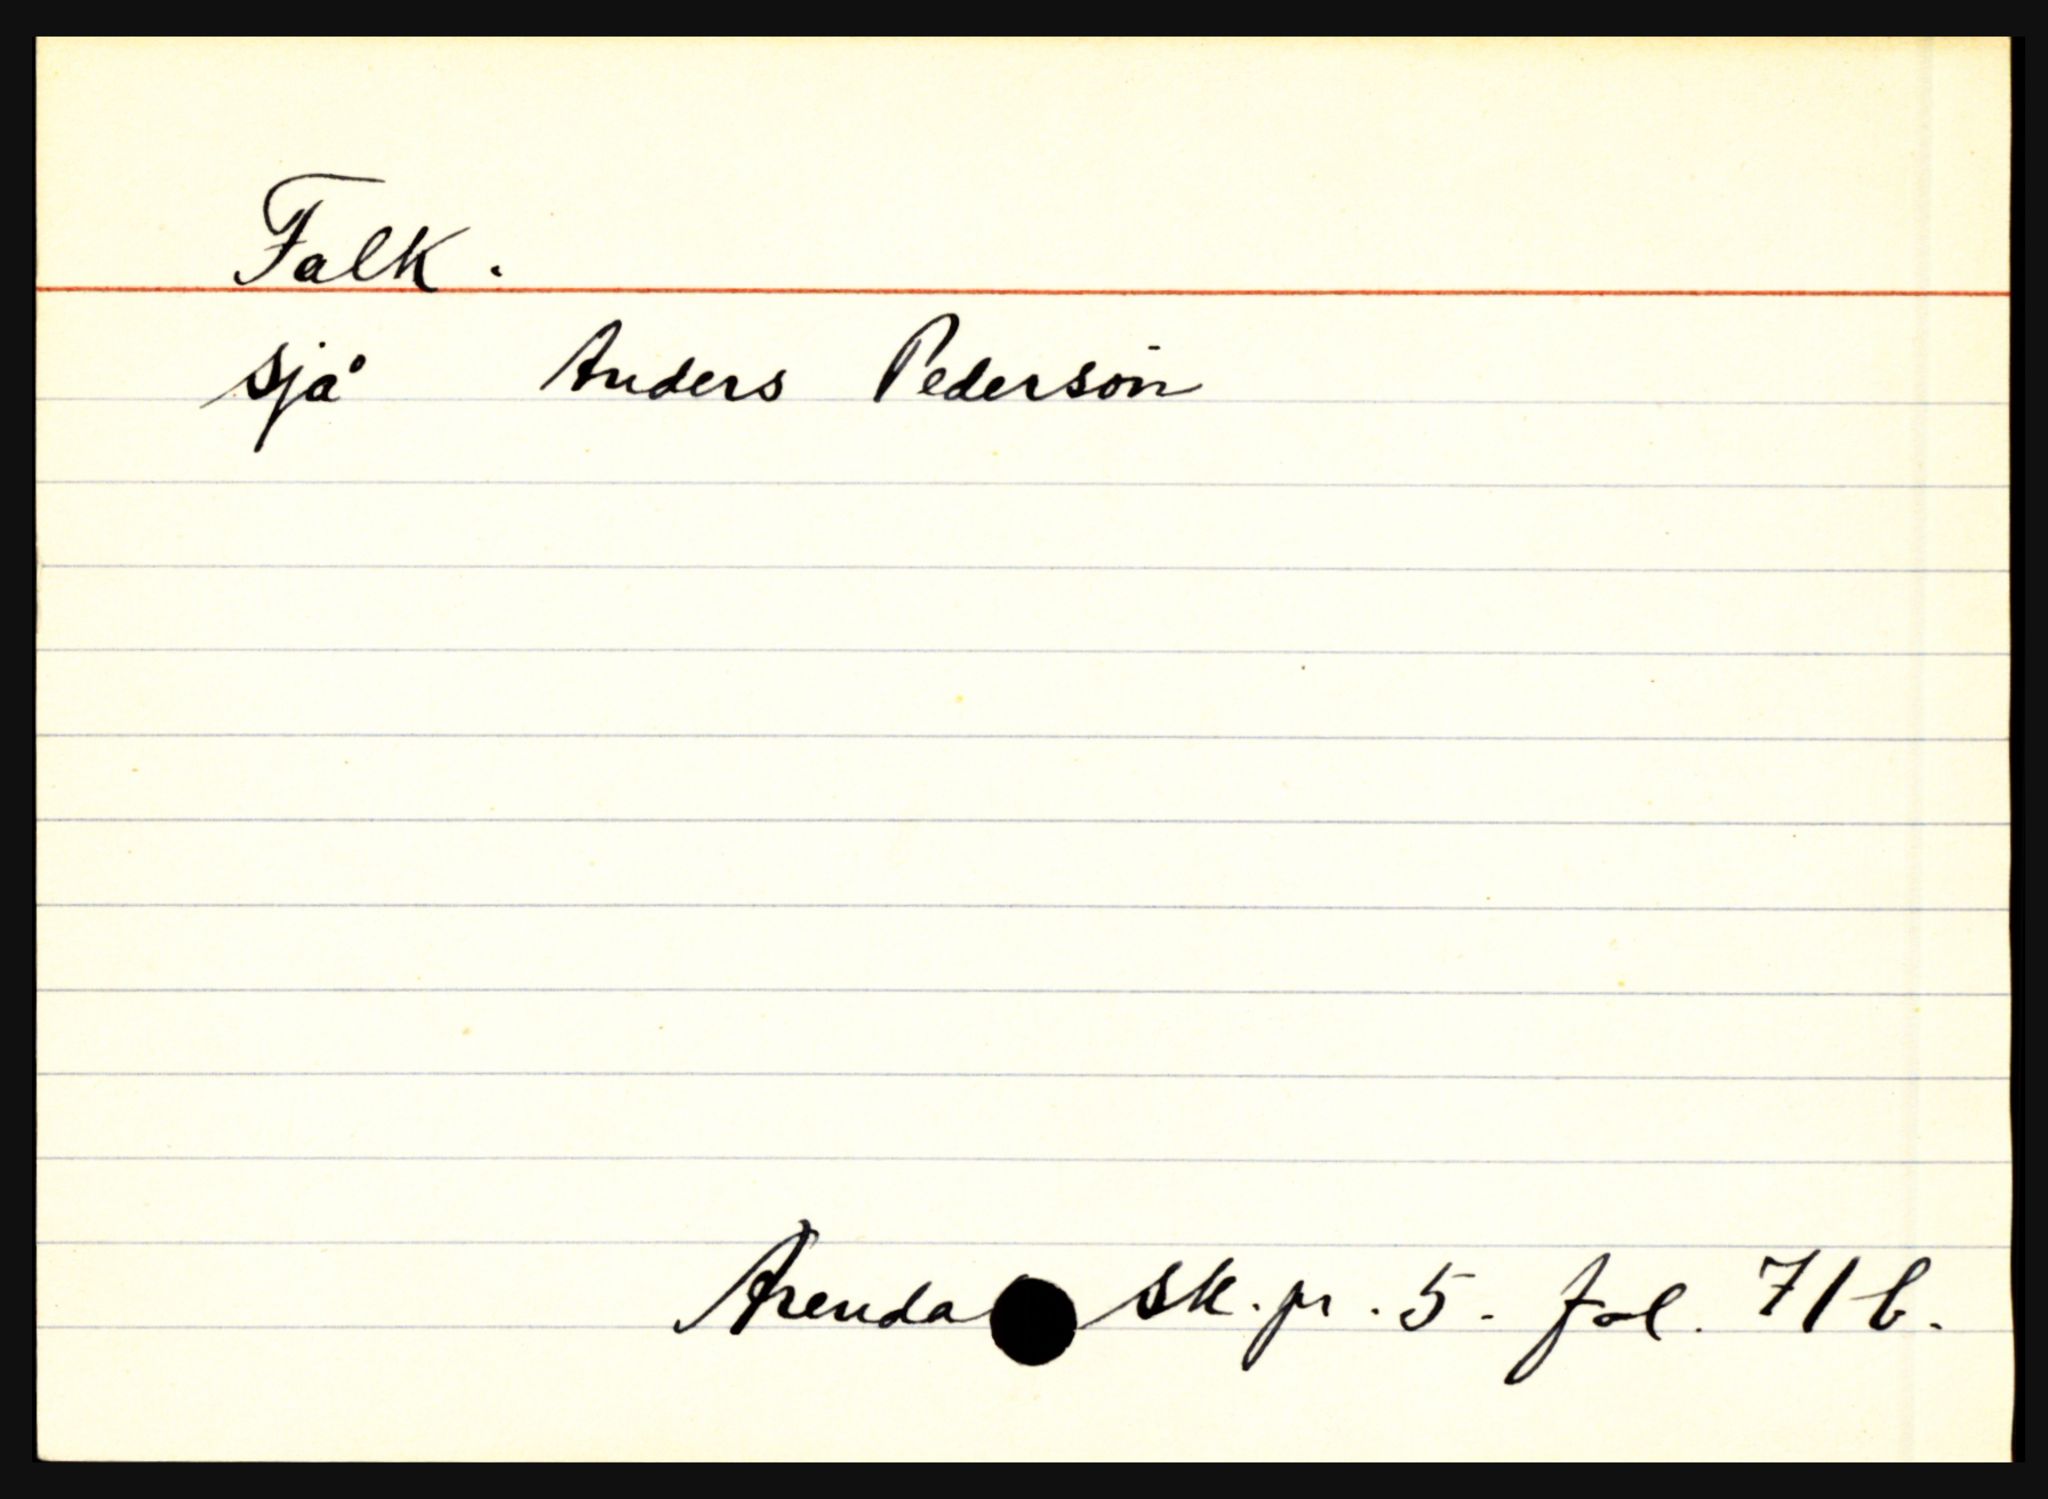 Falk.
sjå Anders Pederson
Arenda sk.pr. 5. fol. 71b.